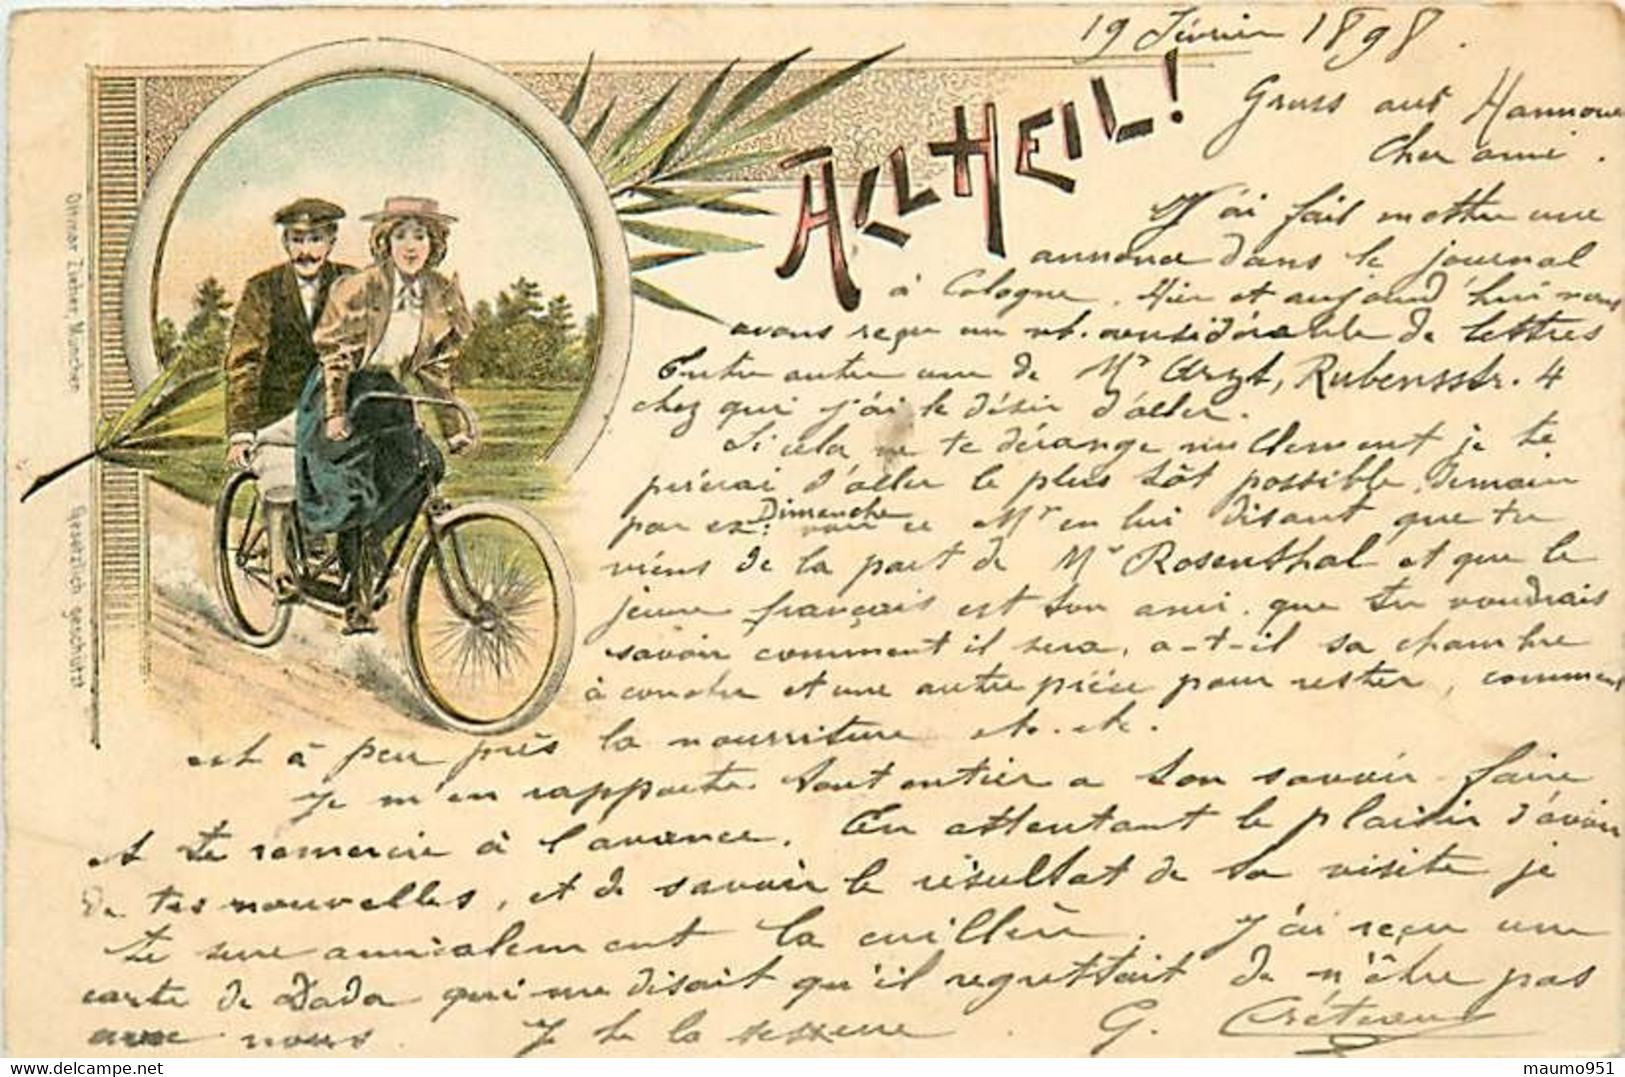 19 Février 1898.
ALLHEIL!
Gruss aus Hannover
Cher ami.
J'ai fait mettre une
annonce dans le journal
à Cologne. Hier et aujourd'hui nous
avons reçu un nb. considérable de lettres
Entre autre une de Mr Arzt, Rubensstr. 4
chez qui j'ai le désir d'aller.
Si cela ne te dérange nullement je te
prierai d'aller le plus tôt possible, demain
par ex: Dimanche voir ce Mr en lui disant que tu
viens de la part de Mr Rosenthal et que le
jeune français est ton ami. que tu voudrais
savoir comment il sera, a-t-il sa chambre
à coucher et une autre pièce pour rester, comment
est à peu près la nourriture etc. etc.
Je m'en rapporte tout entier a ton savoir faire
et te remercie à l'avance. En attendant le plaisir d'avoir
de tes nouvelles, et de savoir le résultat de ta visite je
te serre amicalement la cuillère. J'ai reçu une
carte de Dada qui me disait qu'il regrettait de n'être pas
avec nous. Je te la
G. Créteau
Ottmar Zieher, München
Gesetzlich geschützt
maumo951